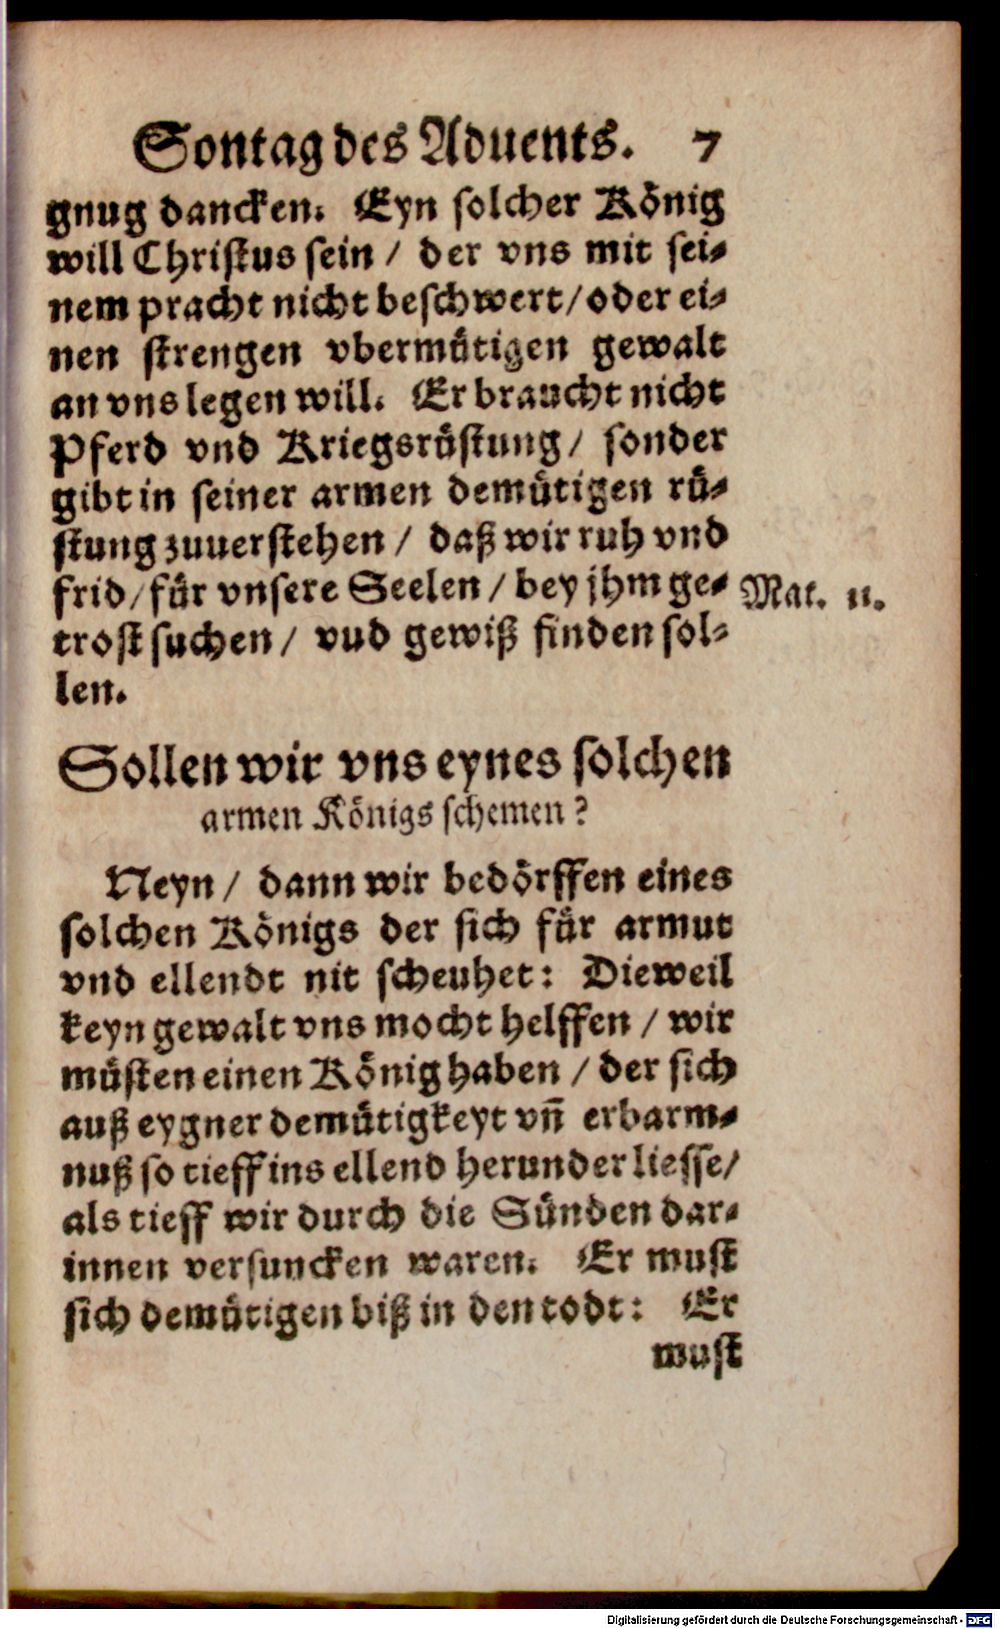 Sontag des Aduents. 7
gnug dancken. Eyn solcher König
will Christus sein / der vns mit sei-
nem pracht nicht beschwert / oder ei-
nen strengen vbermütigen gewalt
an vns legen will. Er braucht nicht
Pferd vnd Kriegsrüstung / sonder
gibt in seiner armen demütigen rü-
stung zuuerstehen / daß wir ruh vnd
frid / für vnsere Seelen / bey jhm ge-
Mat. 11.
trost suchen / vud gewiß finden sol-
len.
Sollen wir vns eynes solchen
armen Königs schemen?
Neyn / dann wir bedörffen eines
solchen Königs der sich für armut
vnd ellendt nit scheuhet: Dieweil
keyn gewalt vns mocht helffen / wir
müsten einen König haben / der sich
auß eygner demütigkeyt vñ erbarm-
nuß so tieff ins ellend herunder liesse /
als tieff wir durch die Sünden dar-
innen versuncken waren. Er must
sich demütigen biß in den todt: Er
wust
Digitalisierung gefördert durch die Deutsche Forschungsgemeinschaft - DFG